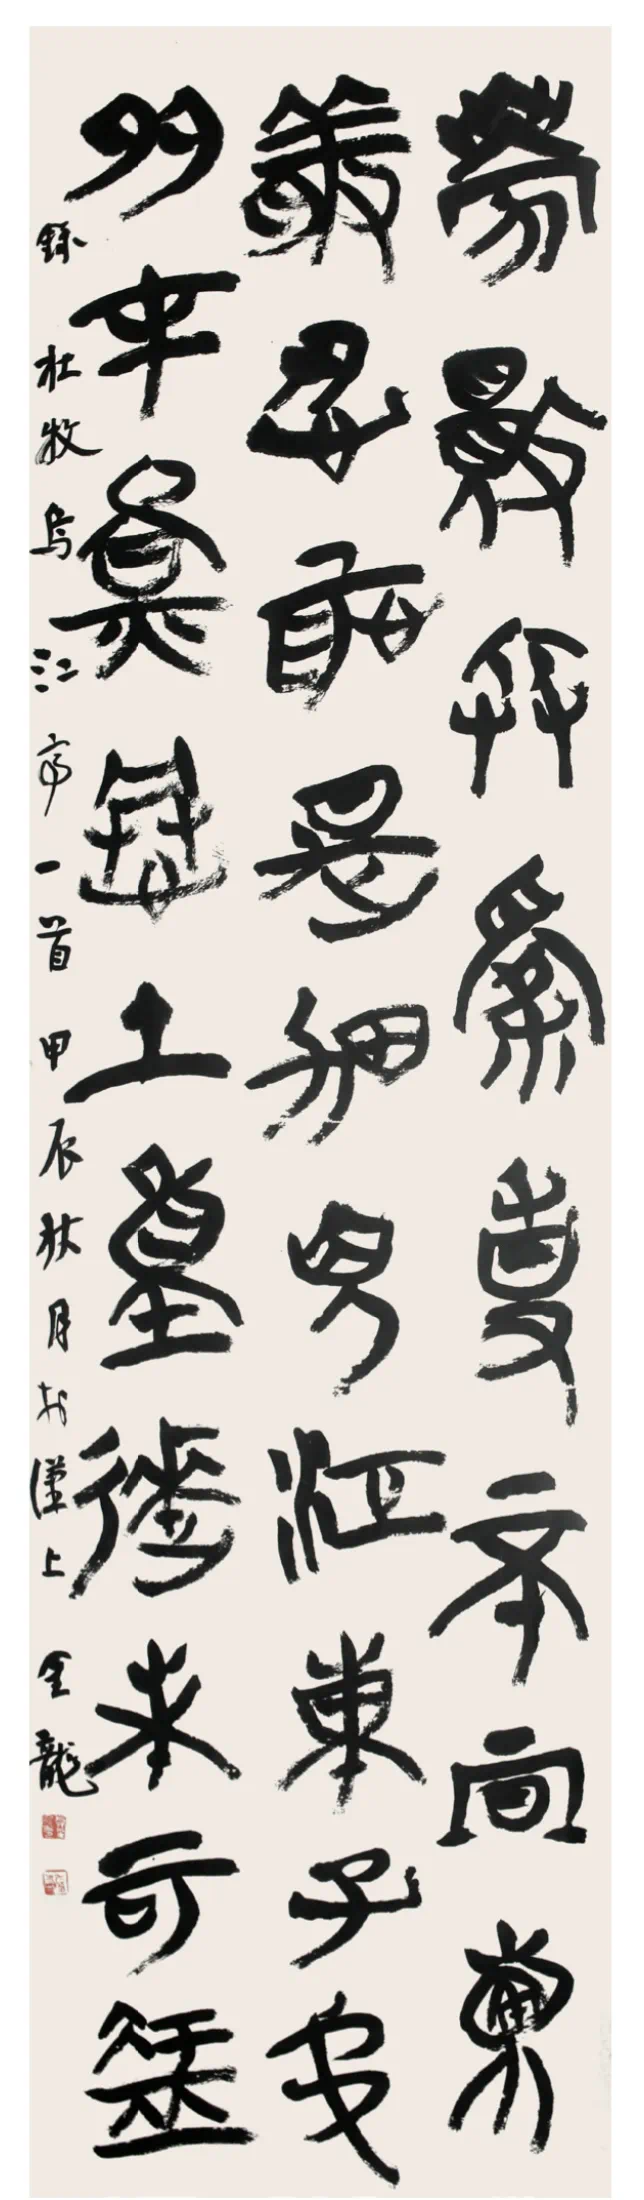 勝敗兵家事不期包
羞忍恥是男兒江東子弟
多才俊捲土重來未可知
錄杜牧烏江亭一首甲辰秋月於漢上金龍